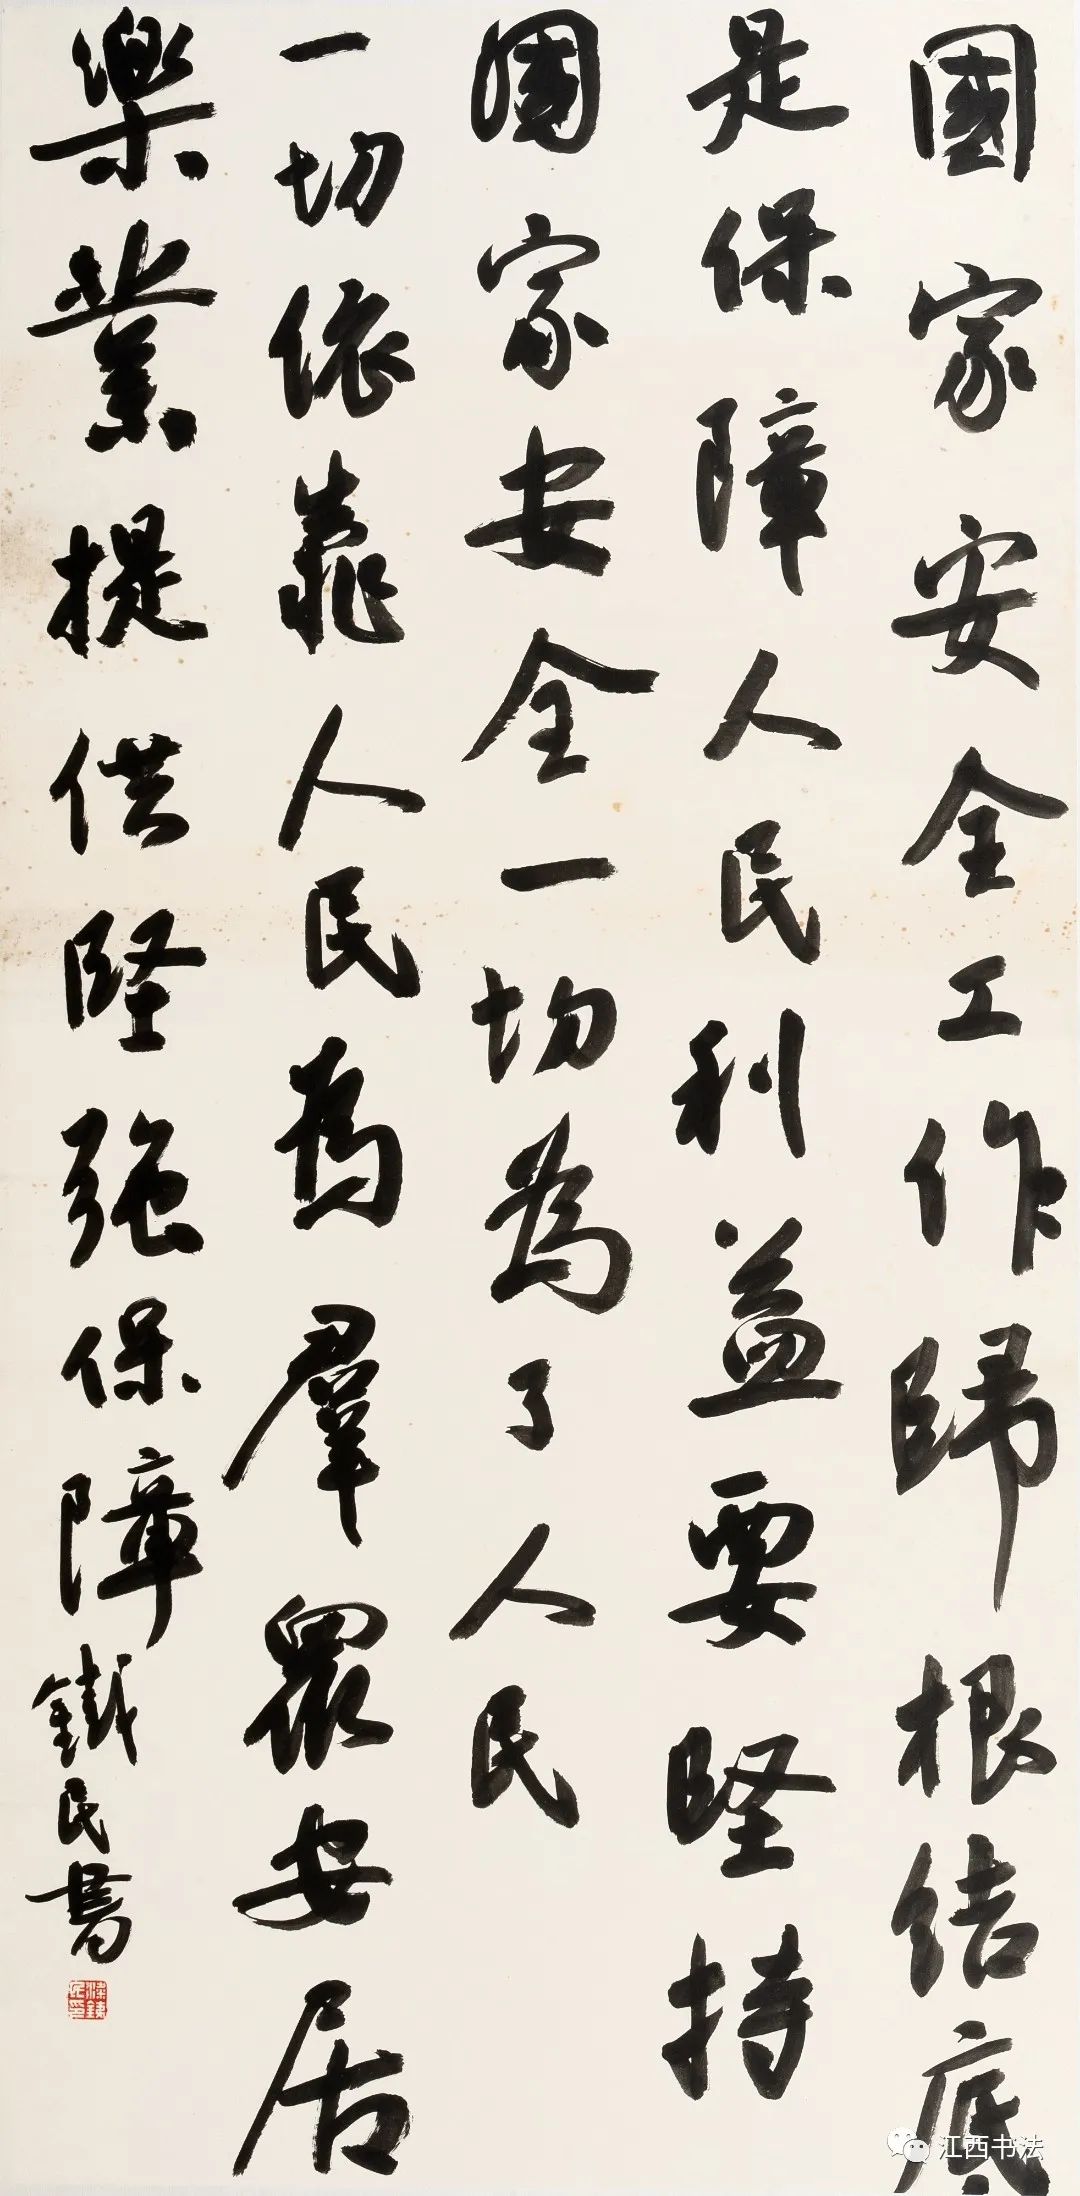 國家安全工作歸根結底
是保障人民利益要堅持
國家安全一切為了人民
一切依靠人民為羣眾安居
樂業提供堅強保障 鐵民書
江西书法